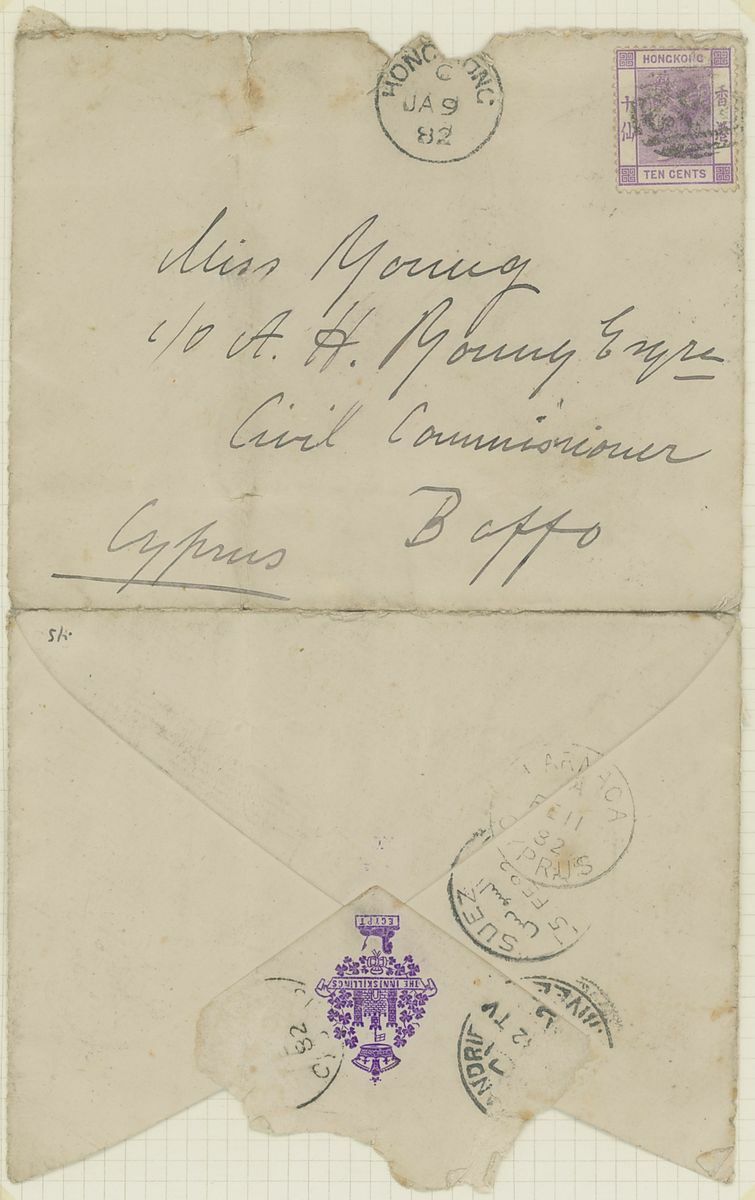 HONG KONG
C
JA 9
82
HONG KONG
香港
十仙
TEN CENTS
Miss Young
c/o A. H. Young Esqre
Civil Commissioner
Baffo
Cyprus
LARNACA
A
FE 11
82
CYPRUS
SUEZ
السويس
5 FE 82
EGIPT
THE INNISKILLINGS
82
ANDRIE
ARRIVEE